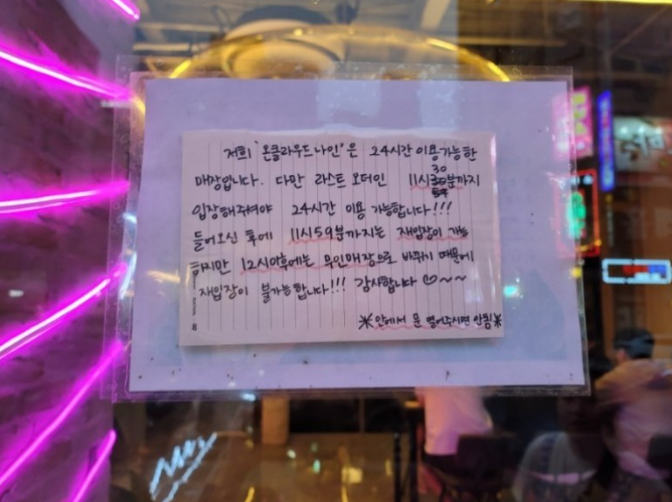 저희 '온클라우드나인'은 24시간 이용가능한
매장입니다. 다만 라스트 오더인 11시 30분까지
입장해주셔야 24시간 이용 가능합니다!!!
들어오신 후에 11시59분까지는 재입장이 가능
하지만 12시이후에는 무인매장으로 바뀌기 때문에
재입장이 불가능합니다!!! 감사합니다 ♡~~
※안에서 문 열어주시면 안됨※